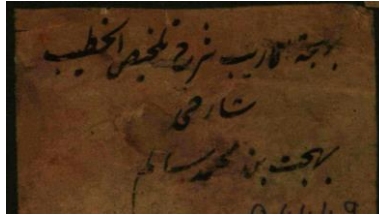 بهجة الاريب شرح تلخيص الخطيب
شارحى
بهجت بن محمد سالم